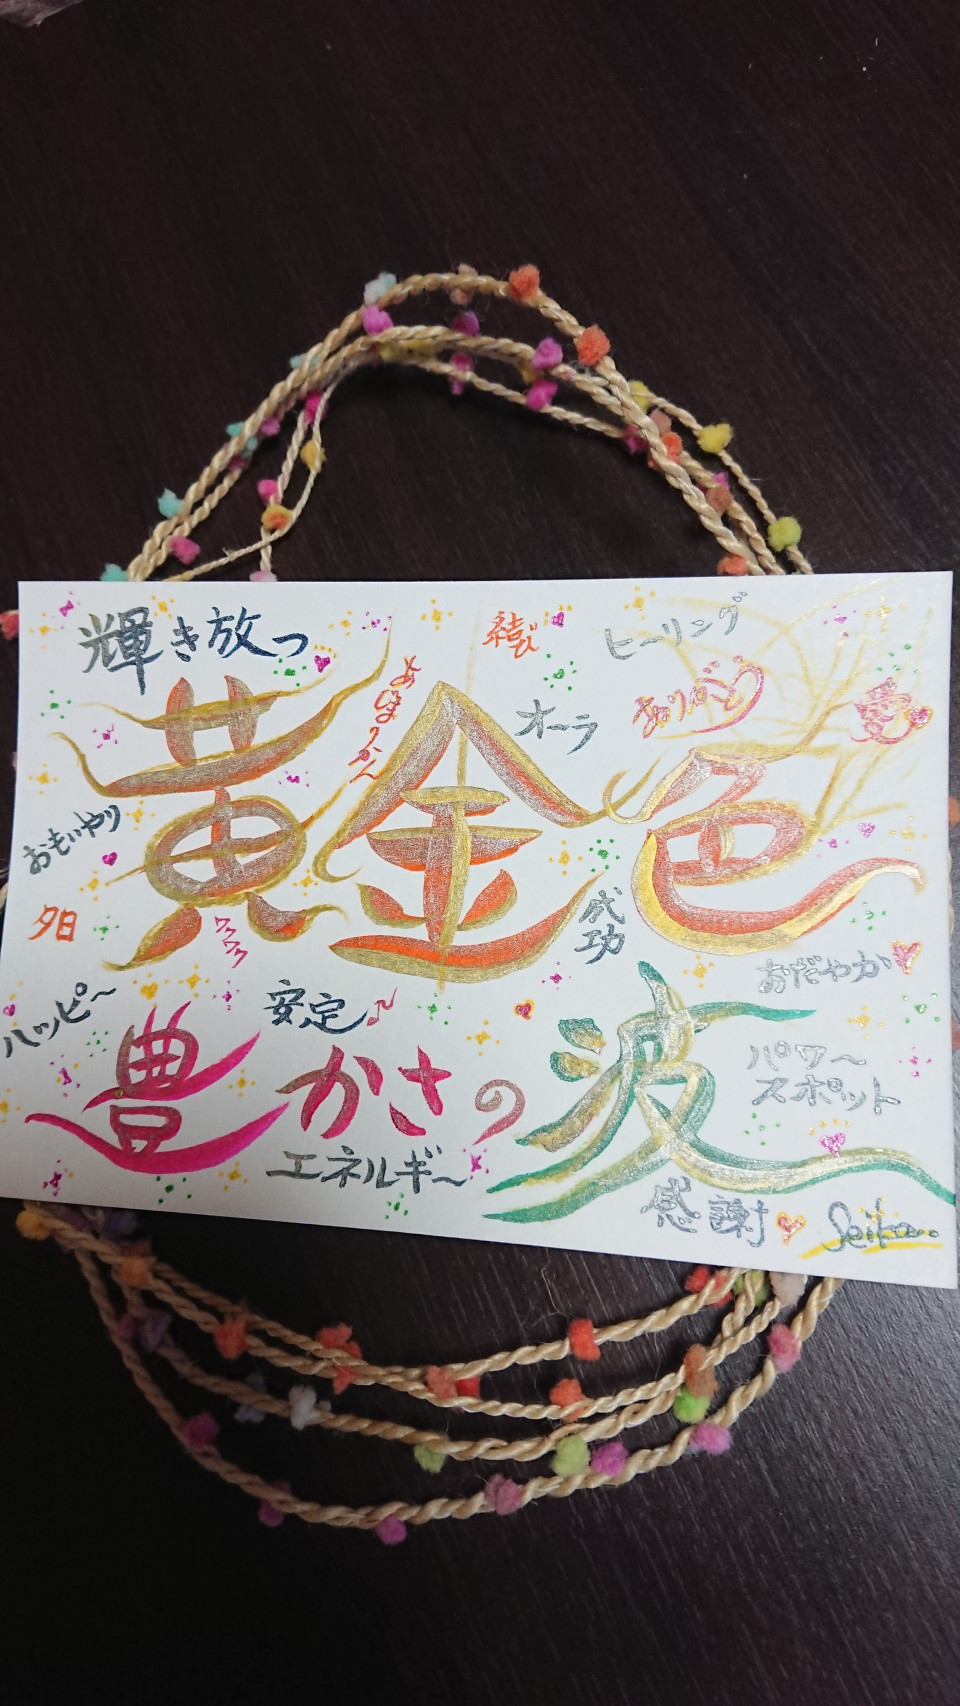 輝き放つ
結び
ヒーリング
ありがとう
愛
オーラ
黄金色
おもいやり
夕日
ワクワク
成功
おだやか
ハッピ〜
安定
豊かさの波
パワ〜
スポット
エネルギ〜
感謝
Seiko